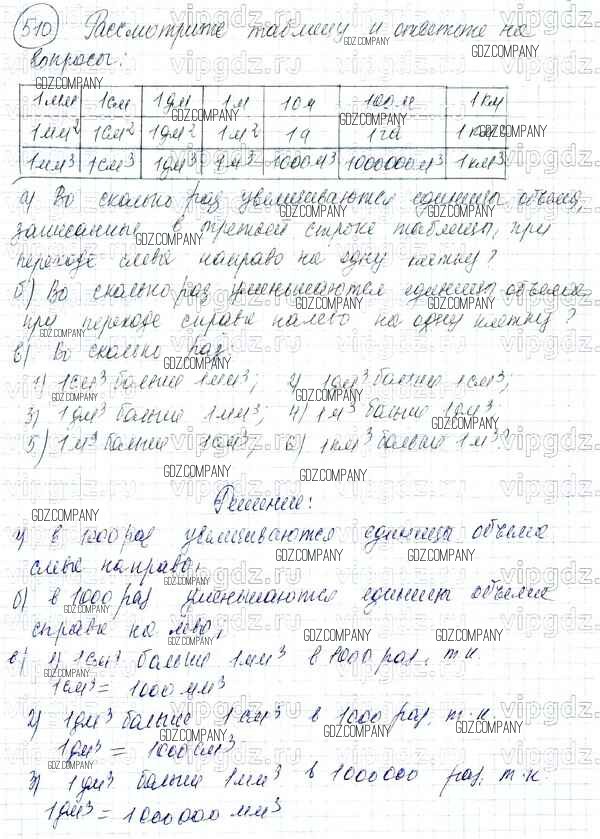 510 Рассмотрите таблицу и ответьте на
вопросы:
1мм 1см 1дм 1м 10м 100м 1км
1мм² 1см² 1дм² 1м² 1а 1га 1км²
1мм³ 1см³ 1дм³ 1м³ 1000м³ 1000000м³ 1км³
а) Во сколько раз увеличиваются единицы объема,
записанные в третьей строке таблицы, при
переходе слева направо на одну клетку?
б) Во сколько раз уменьшаются единицы объема
при переходе справа налево на одну клетку?
в) Во сколько раз:
1) 1см³ больше 1мм³; 2) 1дм³ больше 1см³;
3) 1дм³ больше 1мм³; 4) 1м³ больше 1дм³;
5) 1м³ больше 1см³; 6) 1км³ больше 1м³?
Решение:
а) в 1000 раз увеличиваются единицы объема
слева направо;
б) в 1000 раз уменьшаются единицы объема
справа на лево;
в) 1) 1см³ больше 1мм³ в 1000 раз, т.к.
1см³ = 1000 мм³
2) 1дм³ больше 1см³ в 1000 раз, т.к.
1дм³ = 1000 см³
3) 1дм³ больше 1мм³ в 1000000 раз, т.к.
1дм³ = 1000000 мм³
GDZ.COMPANY
vipgdz.ru